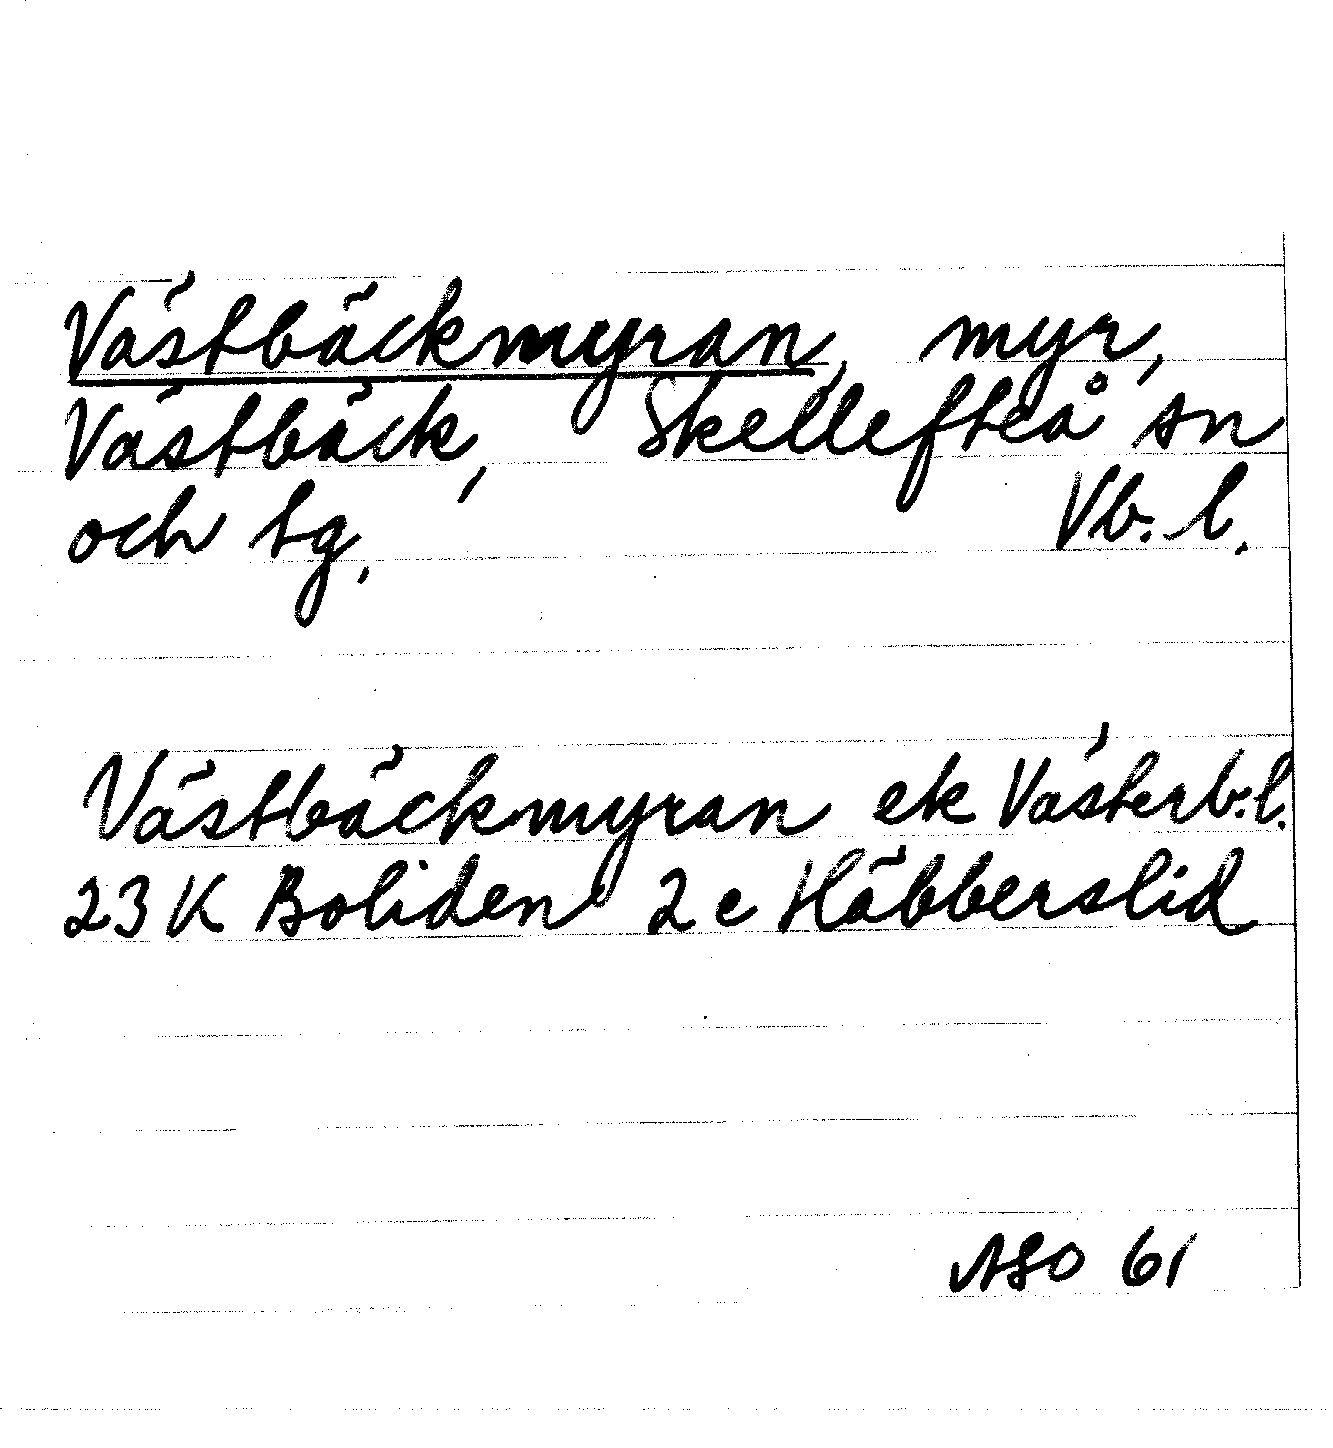 Västbäckmyran, myr,
Västbäck, Skellefteå sn
och tg, Vb. l.
Västbäckmyran ek Västerb. l.
23 K Boliden 2 c Häbberslid
ASO 61